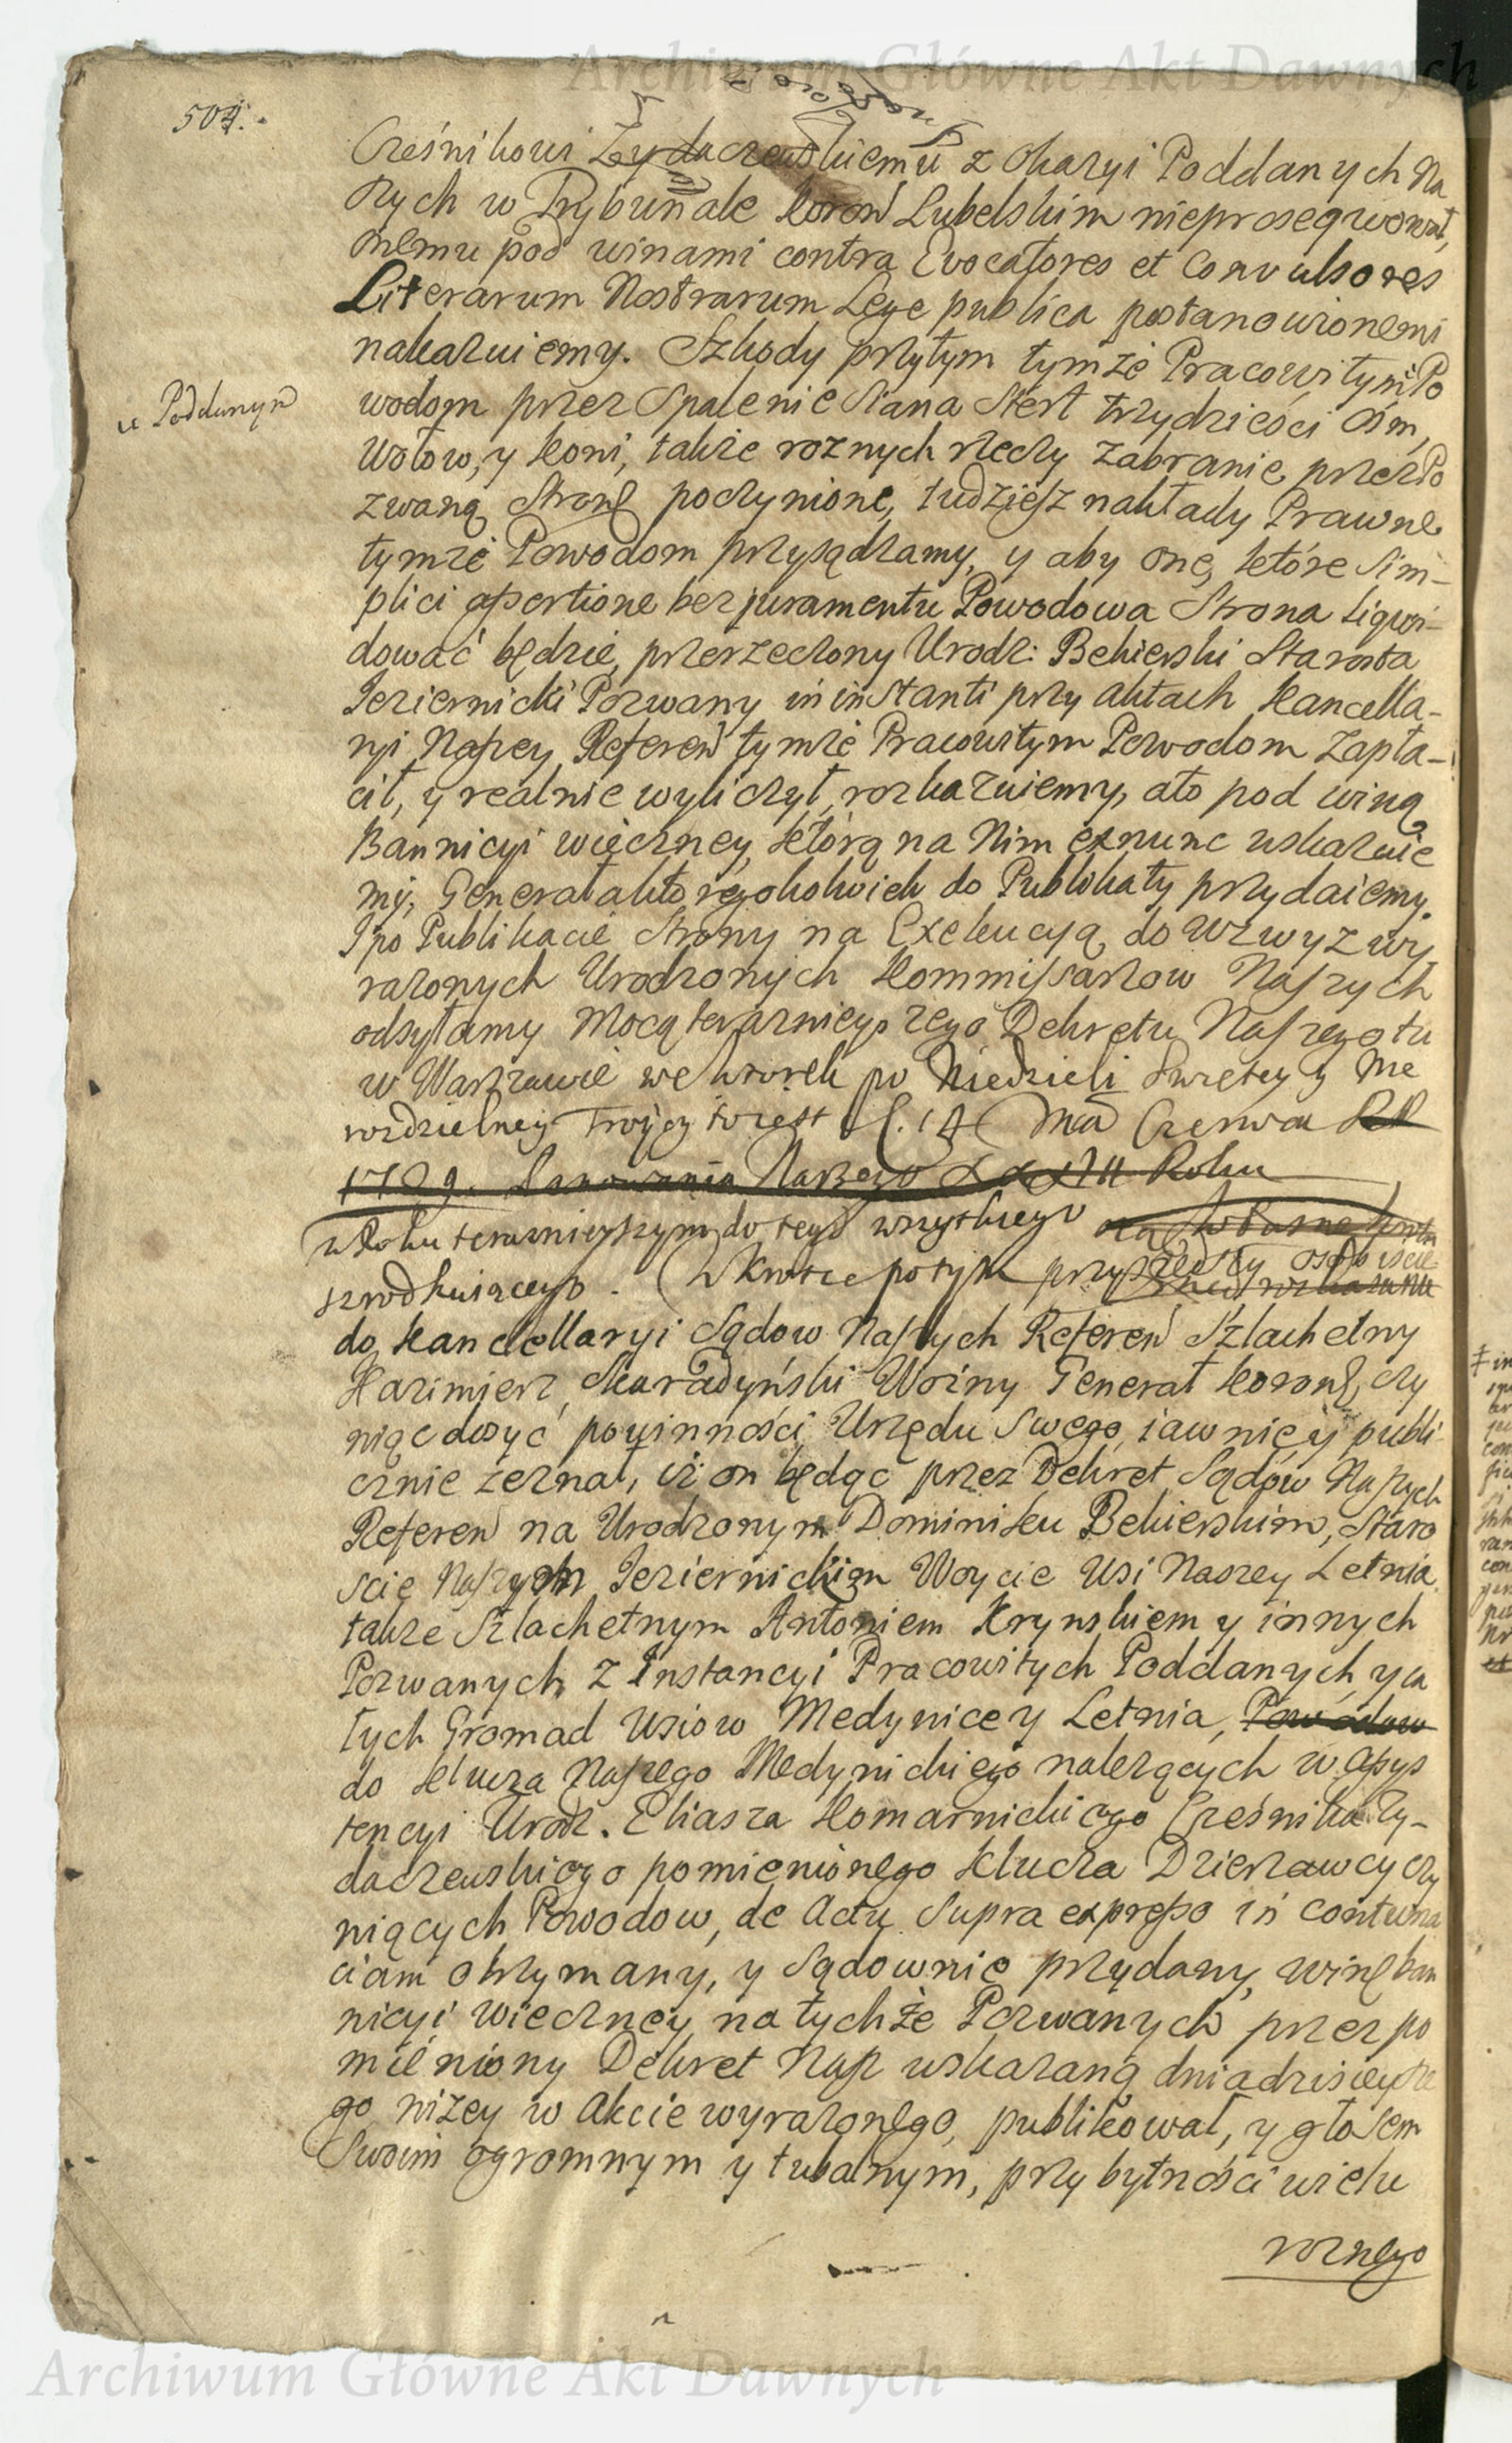 Archiwum Główne Akt Dawnych
504.
Cześnikowi Zydaczewskiemu z okazyi Poddanych Na
szych w Trybunale Koron Lubelskim nieprosequował,
onemu pod winami contra Evocatores et Convulsores
Literarum Nostrarum Lege publica postanowionemi
nakazuiemy. Szkody przytym tymże Pracowitym Po
wodom przez Spalenie Siana Stert trzydzieści ośm,
Wołow, y Koni, także roznych rzeczy zabranie, przez Po
zwaną Stronę poczynione, tudzież nakłady Prawne
tymże Powodom przysądzamy, y aby one, które Sim-
plici assertione bez juramentu Powodowa Strona liqui-
dować będzie, przerzeczony Urodz: Bekierski Starosta
Jeziernicki Pozwany in instanti przy aktach Kancella-
ryi Naszey Referen tymże Pracowitym Powodom zapła-
cił, y realnie wyliczył, rozkazuiemy, a to pod winą
Bannicyi wieczney, którą na Nim exnunc wskazuie
my, Generała któregokolwiek do Publikaty przydaiemy.
I po Publikacie Strony na Exekucyą do wzwyz wy
rażonych Urodzonych Kommissarzow Naszych
odsyłamy Mocą teraznieyszego Dekretu Naszego tu
w Warszawie we Wtorek po Niedzieli Swiętey y Nie
rozdzielney Troycy to iest d. 14 Mca Czerwca
1729. Panowania Naszego XXXII Roku
w Roku teraznieyszym do tego wszytkiego
W Krotce potym przyszedszy osobiscie
do Kancellaryi Sądow Naszych Referen Szlachetny
Kazimierz Skaradyński Woźny Generał Koronny, czy
niąc dosyć powinności Urzędu Swego, iawnie y publi-
cznie zeznał, iż on będąc przez Dekret Sądow Naszych
Referen na Urodzonym Dominiku Bekierskim, Staro
scie Naszym Jeziernickim Woycie Wsi Naszey Letnia
także Szlachetnym Antoniem Krynskiem y innych
Pozwanych z Instancyi Pracowitych Poddanych y ca
łych Gromad Wsiow Medynice y Letnia, Powodow
do Klucza Naszego Medynickiego należących w assys
tencyi Urodz. Eliasza Komarnickiego Cześnika Zy-
daczewskiego pomienionego Klucza Dzierzawcy czy
niących Powodow, de Actu Supra expresso in contuma
ciam otrzymany, y Sądownie przydany, winę ban
nicyi wieczney na tychże Pozwanych przez po
mieniony Dekret Nasz wskazaną dnia dzisieysze
go niżey w akcie wyrażonego, publikował, y głosem
Swoim ogromnym y tubalnym, przy bytności wielu
roznego
Archiwum Główne Akt Dawnych